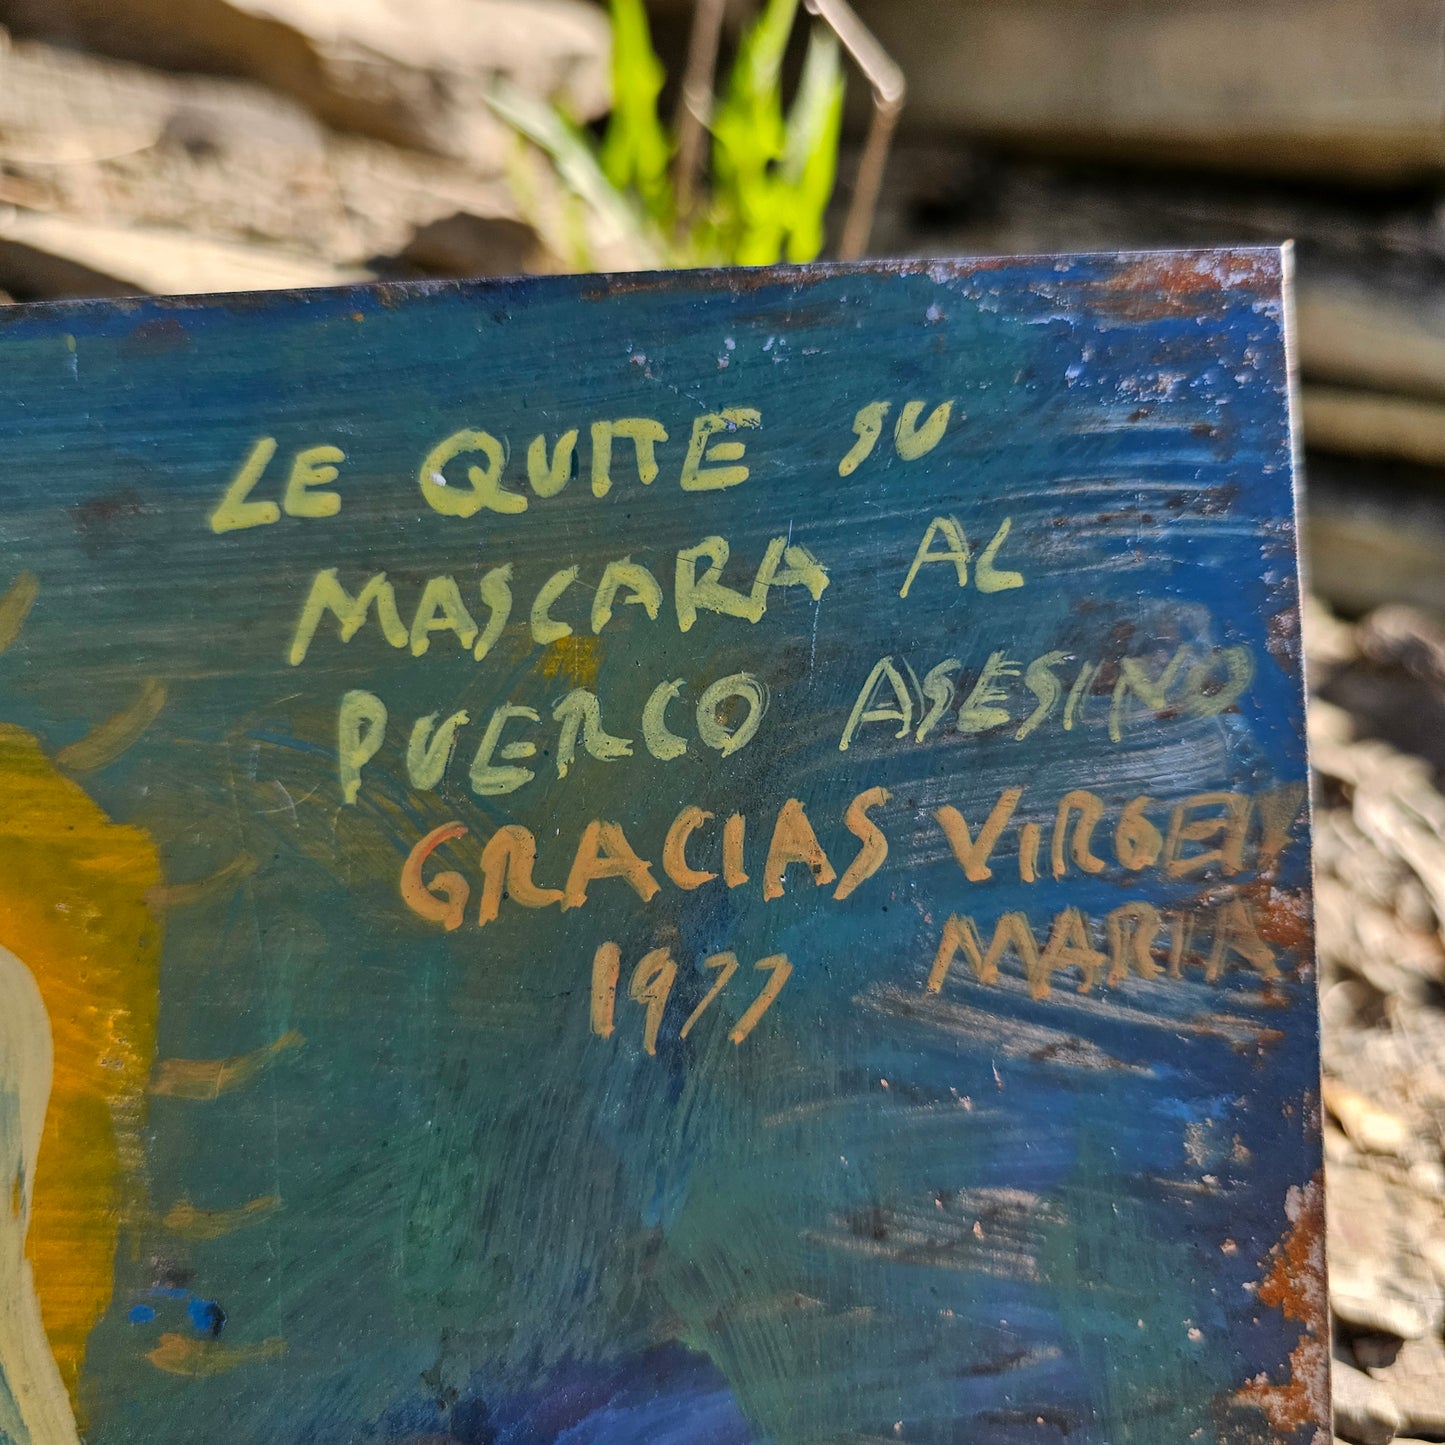 LE QUITE SU
MASCARA AL
PUERCO ASESINO
GRACIAS VIRGEN
MARIA
1977